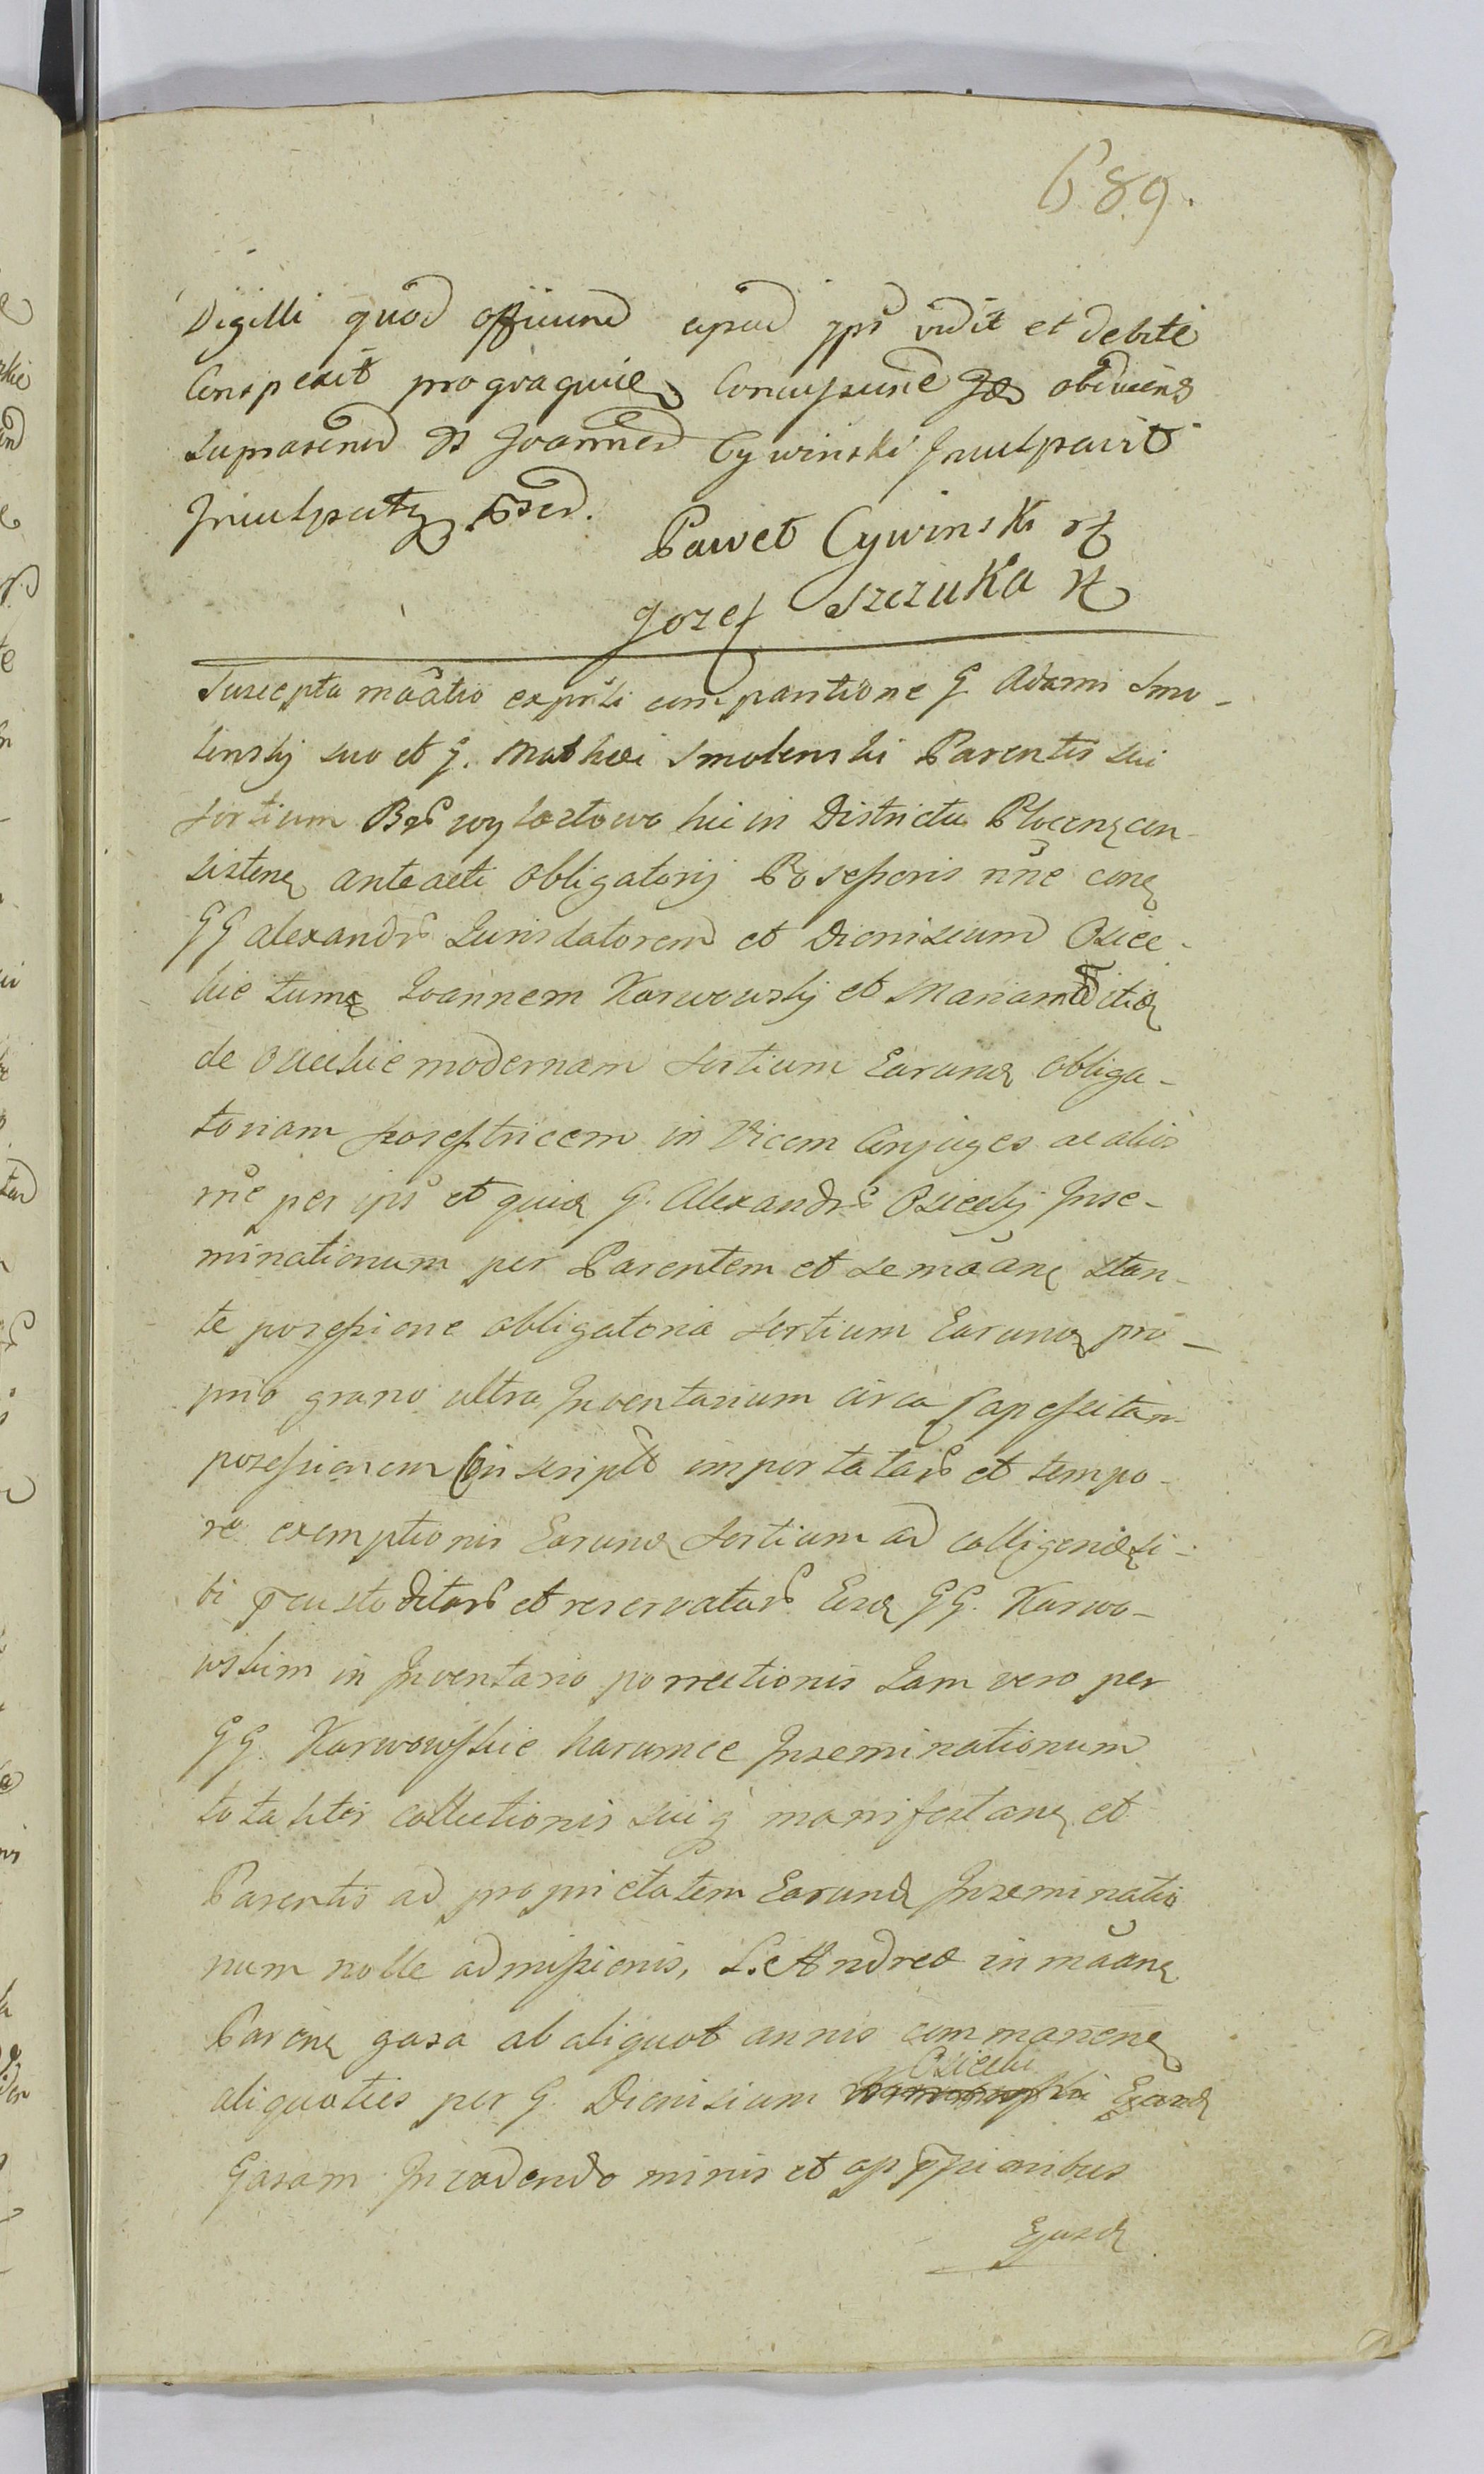 689.
Digilli quod officium apud ips vidit et debite
Conspexit pro qua quidem Concussione Gd obducens
suprascrip Joannes Cywinski Inculpavit
Inculpat
Paweł Cywinski
Jozef Szczuka
Suscepta maãtio exprsti comparitione G. Adami Smo-
lenskj suo et G. Mathei Smolenski Parentis sui
sortium Bor wyłoztowo hic in Districtu Płocen con-
sisten anteacti obligatorij Possessoris nne con
GG Alexandr Jurisdatorem et Dionisium Osiec-
kie tum Joannem Karwowskj et Mariam
de Osieckie modernam sortium Earund obliga-
toriam possestricem in Vicem Conjuges ac alios
me per ips et quia G. Alexandr Osieckj Inse-
minationum per Parentem et se mãan stan-
te possessione obligatoria sortium Earund pro-
prio grano ultra Inventarium circa Capessitan
possessionem Conscript importatar et tempo-
re exemptionis Earund sortium ad colligend si-
bi pcustoditar et reservatar Eisd GG. Karwo-
wskim in Inventario porrectionis Iam vero per
GG. Karwowskie harumce Inseminationum
totaliter collectionis suiq manifestan et
Parentis ad proprietatem Earund Inseminatio
num nolle admissionis, L. Andrea in mãan
Paren gasa ab aliquot annis commanen
aliquoties per G. Dionisium Osiecki Eand
Gasam Invadendo minis et oppssionibus
Ejusd